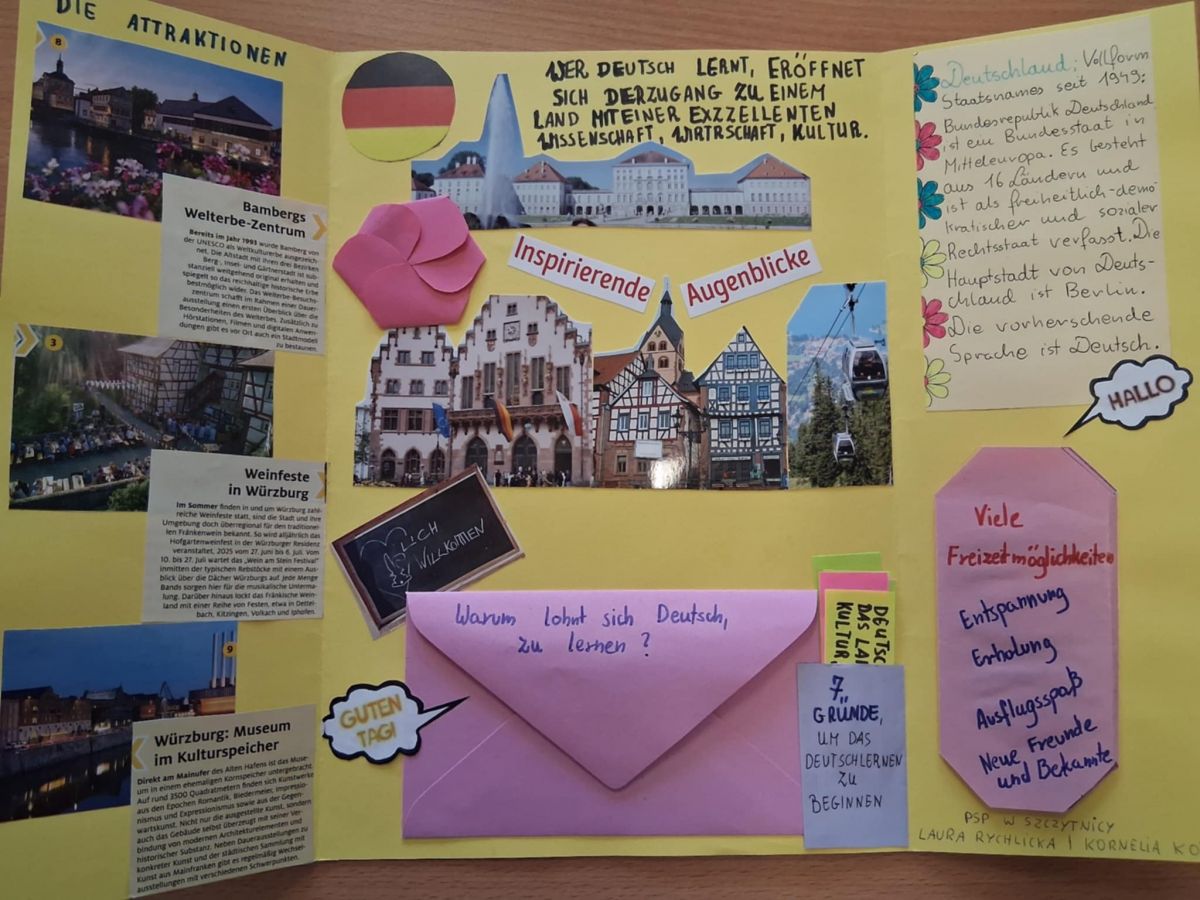 DIE ATTRAKTIONEN
8
Bambergs
Welterbe-Zentrum
Bereits im Jahr 1993 wurde Bamberg von
der UNESCO als Weltkulturerbe ausgezeich-
net. Die Altstadt mit ihren drei Bezirken
Berg-, Insel- und Gärtnerstadt ist sub-
stanziell weitgehend original erhalten und
spiegelt so das reichhaltige historische Erbe
bestmöglich wider. Das Welterbe-Besuchs-
zentrum schafft im Rahmen einer Dauer-
ausstellung einen ersten Überblick über die
Besonderheiten des Welterbes. Zusätzlich zu
Hörstationen, Filmen und digitalen Anwen-
dungen gibt es vor Ort auch ein Stadtmodell
zu bestaunen.
3
Weinfeste
in Würzburg
Im Sommer finden in und um Würzburg zahl-
reiche Weinfeste statt, sind die Stadt und ihre
Umgebung doch überregional für den traditionel-
len Frankenwein bekannt. So wird alljährlich das
Hofgartenweinfest in der Würzburger Residenz
veranstaltet, 2025 vom 27. Juni bis 6. Juli. Vom
10. bis 27. Juli wartet das „Wein am Stein Festival"
inmitten der typischen Rebstöcke mit einem Aus-
blick über die Dächer Würzburgs auf. Jede Menge
Bands sorgen hier für die musikalische Unterma-
lung. Darüber hinaus lockt das Fränkische Wein-
land mit einer Reihe von Festen, etwa in Dettel-
bach, Kitzingen, Volkach und Iphofen.
9
Würzburg: Museum
im Kulturspeicher
Direkt am Mainufer des Alten Hafens ist das Muse-
um in einem ehemaligen Kornspeicher untergebracht.
Auf rund 3500 Quadratmetern finden sich Kunstwerke
aus den Epochen Romantik, Biedermeier, Impressio-
nismus und Expressionismus sowie aus der Gegen-
wartskunst. Nicht nur die ausgestellte Kunst, sondern
auch das Gebäude selbst überzeugt mit seiner Ver-
bindung von modernen Architekturelementen und
historischer Substanz. Neben Dauerausstellungen zu
konkreter Kunst und der städtischen Sammlung mit
Kunst aus Mainfranken gibt es regelmäßig Wechsel-
ausstellungen mit verschiedenen Schwerpunkten.
WER DEUTSCH LERNT, ERÖFFNET
SICH DERZUGANG ZU EINEM
LAND MITEINER EXZZELLENTEN
WISSENSCHAFT, WIRTRSCHAFT, KULTUR.
Inspirierende
Augenblicke
LICH
WILLKOMMEN
Warum lohnt sich Deutsch,
zu lernen?
GUTEN
TAG!
DEUTSC
DAS LA
KULTUR
7.
GRÜNDE,
UM DAS
DEUTSCHLERNEN
ZU
BEGINNEN
Deutschland: Vollform
Staatsnames seit 1949:
Bundesrepublik Deutschland
ist ein Bundesstaat in
Mitteleuropa. Es besteht
aus 16 Ländern und
ist als freiheitlich-demo
kratischer und sozialer
Rechtsstaat verfasst. Die
Hauptstadt von Deuts-
chland ist Berlin.
Die vorherschende
Sprache ist Deutsch.
HALLO
Viele
Freizeitmöglichkeiten
Entspannung
Erholung
Ausflugsspaß
Neue Freunde
und Bekannte
PSP W SZCZYTNICY
LAURA RYCHLICKA I KORNELIA KO